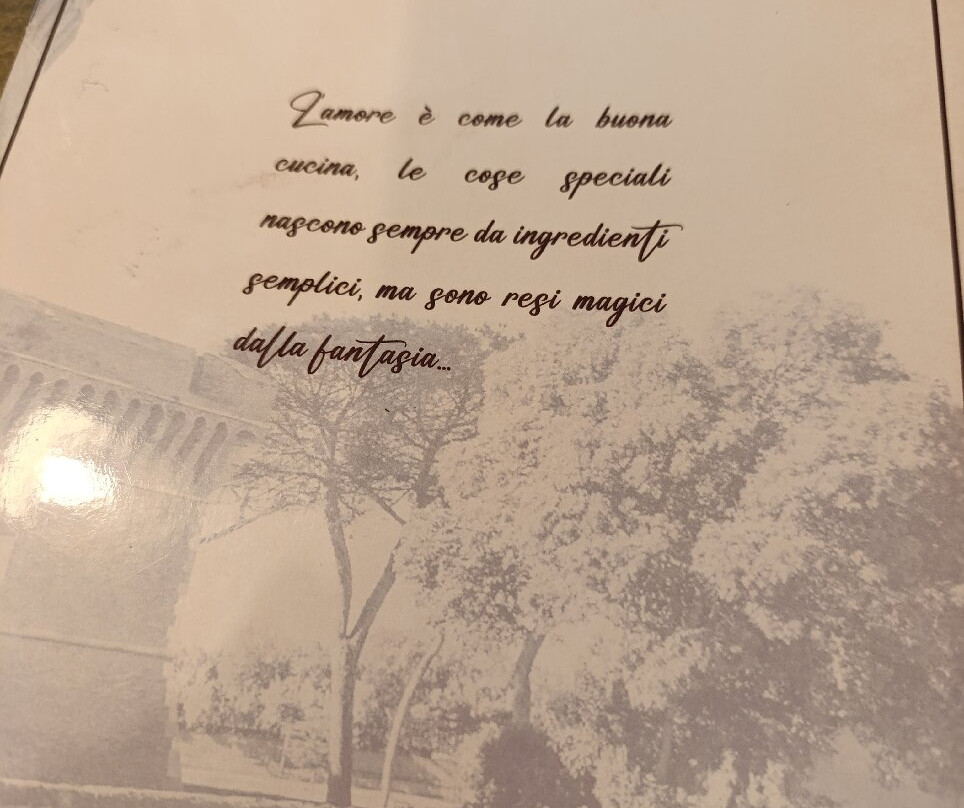 L'amore è come la buona
cucina, le cose speciali
nascono sempre da ingredienti
semplici, ma sono resi magici
dalla fantasia...